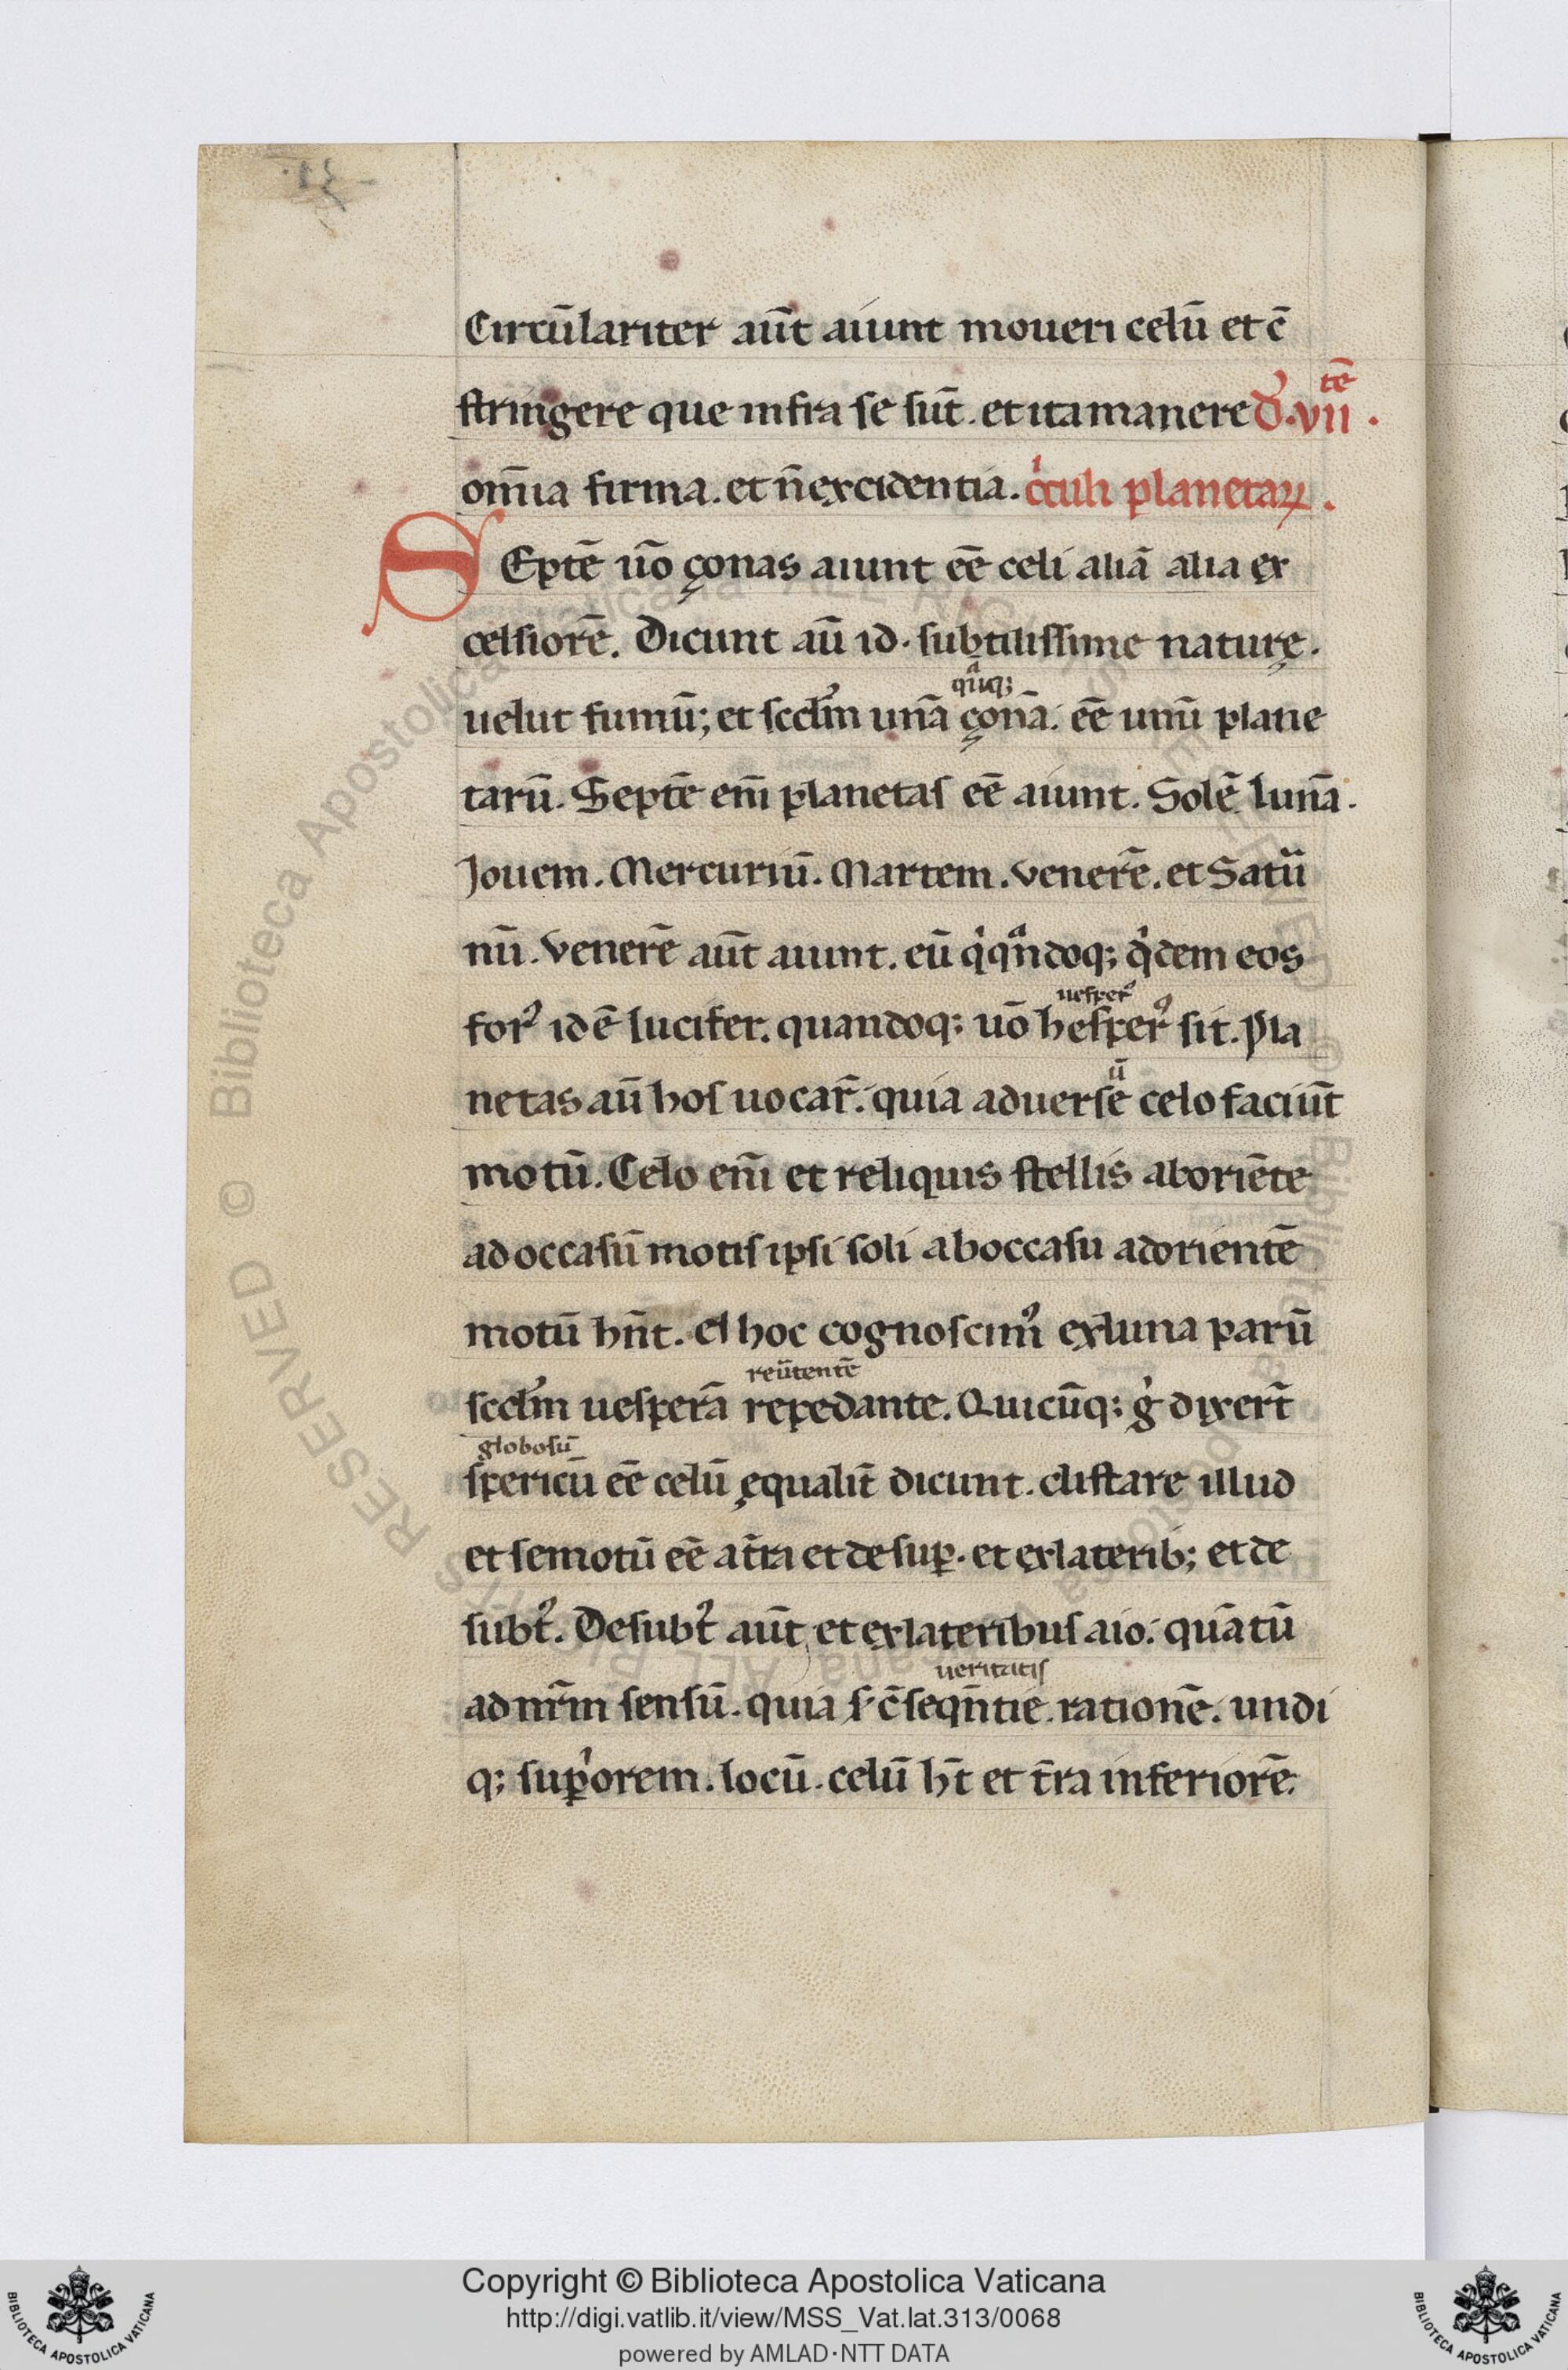 Circūlariter aūt aiunt moueri celū et c̄
stringere que infra se sūt. et ita manere ꝺ̓.vii. tē
om̄ia firma. et n̄ excidentia. cͥculi planetaꝝ.
Septē ūo çonas aiunt eē celi aliā alia ex
celsiorē. Dicunt aū id. subtilissime naturę.
quͣq;
uelut fumū; et scd̓m unā çonā. eē unū plane
tarū. Septē em̄ planetas eē aiunt. Solē lunā.
Jouem. Mercuriū. Martem. Venerē. et Satū
nū. Venerē aūt aiunt. eū qͥ qͣndoq; qͥdem eos
uesper᾿
for᾿ id ē lucifer. quandoq; ūo hesper᾿ sit. Pla
ū
netas aū hos uocar̄. quia aduersē celo faciūt
motū. Celo em̄ et reliquis stellis ab oriēte
ad occasū motis ipsi soli ab occasu ad orientē
motū hn̄t. Et hoc cognoscim᾿ ex luna parū
reūtentē
scd̓m uesperā repedante. Quicūq; gͥ dixer̄t
globosū
spericū eē celū ęqualit̄ dicunt. distare illud
et semotū eē a t̄ra et desuꝑ. et ex laterib; et de
subt᾿. Desubt᾿ aūt et ex lateribus aio. quātū
ueritatis
ad nr̄m sensū. quia s. c̄seqn̄tie rationē. undi
q; suꝑͥorem. locū. celū h̄t et t̄ra inferiorē.
Copyright © Biblioteca Apostolica Vaticana
http://digi.vatlib.it/view/MSS_Vat.lat.313/0068
powered by AMLAD·NTT DATA
BIBLIOTECA APOSTOLICA VATICANA
BIBLIOTECA APOSTOLICA VATICANA